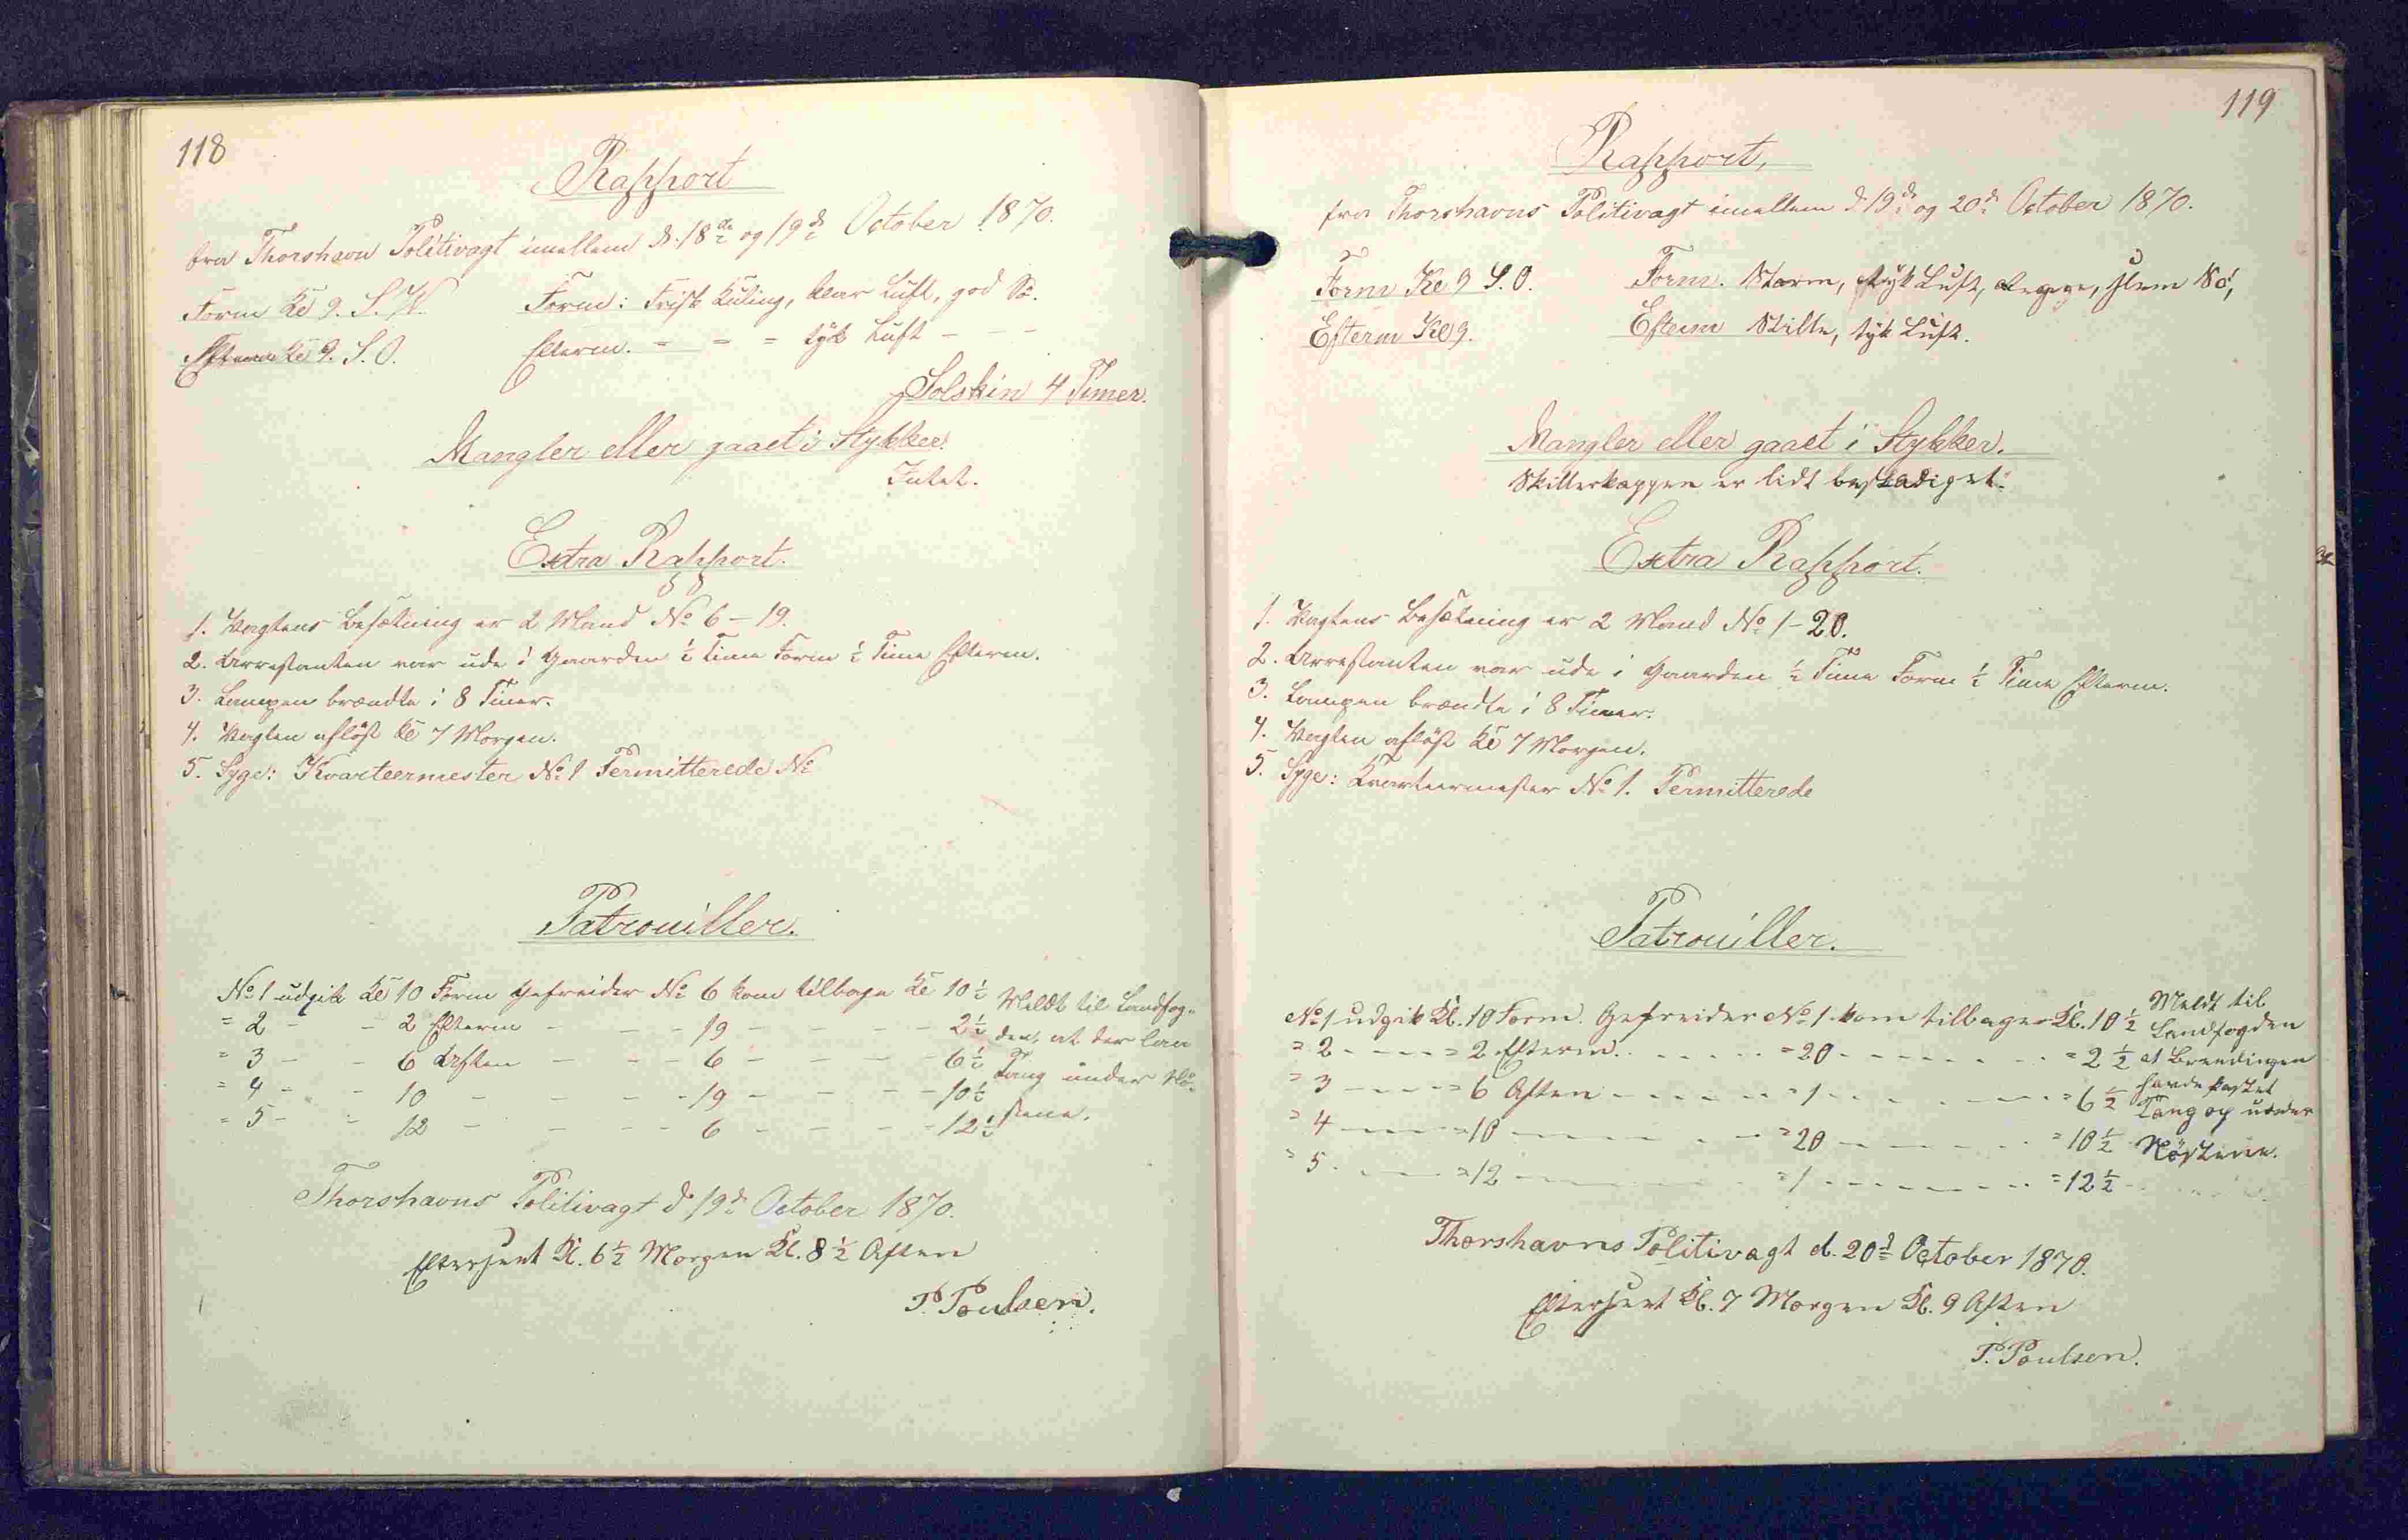 118
Rapport
fra Thorshavn Politivagt imellem d. 18de og 19de October 1870.
Form Kl 9. S.V. Form: Frisk Kuling, klar Luft, god Sö.
Efterm Kl 9. S.O. Efterm. = - = tyk Luft - - -
Solskin 4 Timer.
Mangler eller gaaet i Stykker.
Intet.
Extra Rapport.
1. Vagtens Besætning er 2 Mand No 6 - 19.
2. Arrestanten var ude i Gaarden ½ Time Form ½ Time Efterm.
3. Lampen brændte i 8 Timer.
4. Vagten aflöst Kl 7 Morgen.
5. Syge: Kvarteermester No 1 Permitterede No
Patrouiller.
No 1 udgik Kl 10 Form Gefreider No 6 kom tilbage Kl 10½ Meldt til Landfog-
= 2 - - 2 Efterm - - - 19 - - - - 2½ den, at der laa
= 3 - - 6 Aften - - - 6 - - - - 6½ Tang under Nö-
= 4 - - 10 - - - - 19 - - - - 10½ stene.
= 5 - - 12 - - - - 6 - - - - 12½
Thorshavns Politivagt d 19d October 1870.
Efterseet Kl. 6½ Morgen Kl. 8½ Aften
P. Poulsen.
119
Rapport,
fra Thorshavns Politivagt imellem d 19de og 20de October 1870.
Form Kl 9 S.O. Form. Storm, tyk Luft, Regn, slem Sö,
Efterm Kl 9. Efterm Stille, tyk Luft.
Mangler eller gaaet i Stykker.
Skilterkappen er lidt beskadiget.
Extra Rapport.
1. Vagtens Besætning er 2 Mand No 1 - 20.
2. Arrestanten var ude i Gaarden ½ Time Form ½ Time Efterm.
3. Lampen brændte i 8 Timer.
4. Vagten aflöst Kl 7 Morgen.
5. Syge: Kvarteermester No 1. Permitterede
Patrouiller.
No 1 udgik Kl. 10 Form. Gefreider No 1 kom tilbage Kl. 10½ Meldt til
Landfogden
= 2 - - - = 2 Efterm. - - - = 20 - - - - = 2½ at Brændingen
havde kastet
= 3 - - - = 6 Aften - - - - = 1 - - - - = 6½ Tang op under
= 4 - - - = 10 - - - - = 20 - - - - = 10½ Nöstene.
= 5 - - - = 12 - - - - = 1 - - - - = 12½
Thorshavns Politivagt d. 20d October 1870.
Efterseet Kl. 7 Morgen Kl. 9 Aften
P. Poulsen.